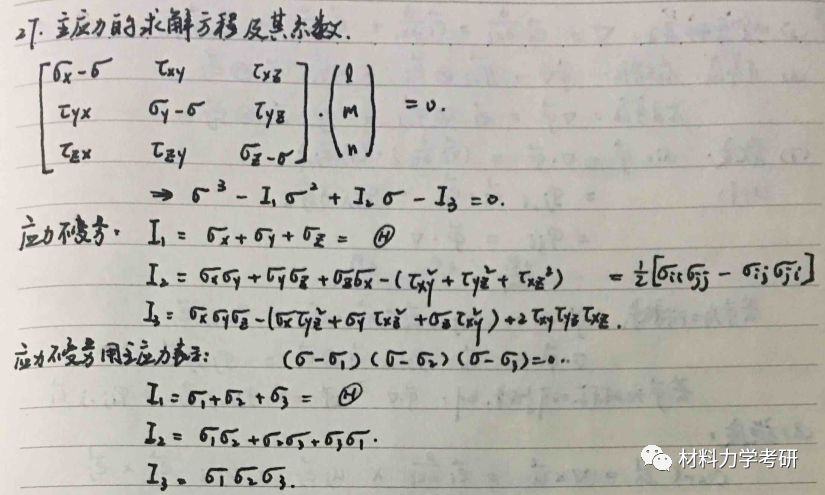 27. 主应力的求解方程及其参数.
[σx-σ τxy τxz
τyx σy-σ τyz
τzx τzy σz-σ] · (l m n) = 0.
⇒ σ³ - I₁σ² + I₂σ - I₃ = 0.
应力不变量: I₁ = σx + σy + σz = Ⓗ
I₂ = σxσy + σyσz + σzσx - (τxy² + τyz² + τxz²) = ½[σiiσjj - σijσji]
I₃ = σxσyσz - (σxτyz² + σyτxz² + σzτxy²) + 2τxyτyzτxz.
应力不变量用主应力表示: (σ-σ₁)(σ-σ₂)(σ-σ₃)=0..
I₁ = σ₁+σ₂+σ₃ = Ⓗ
I₂ = σ₁σ₂+σ₂σ₃+σ₃σ₁.
I₃ = σ₁σ₂σ₃.
材料力学考研